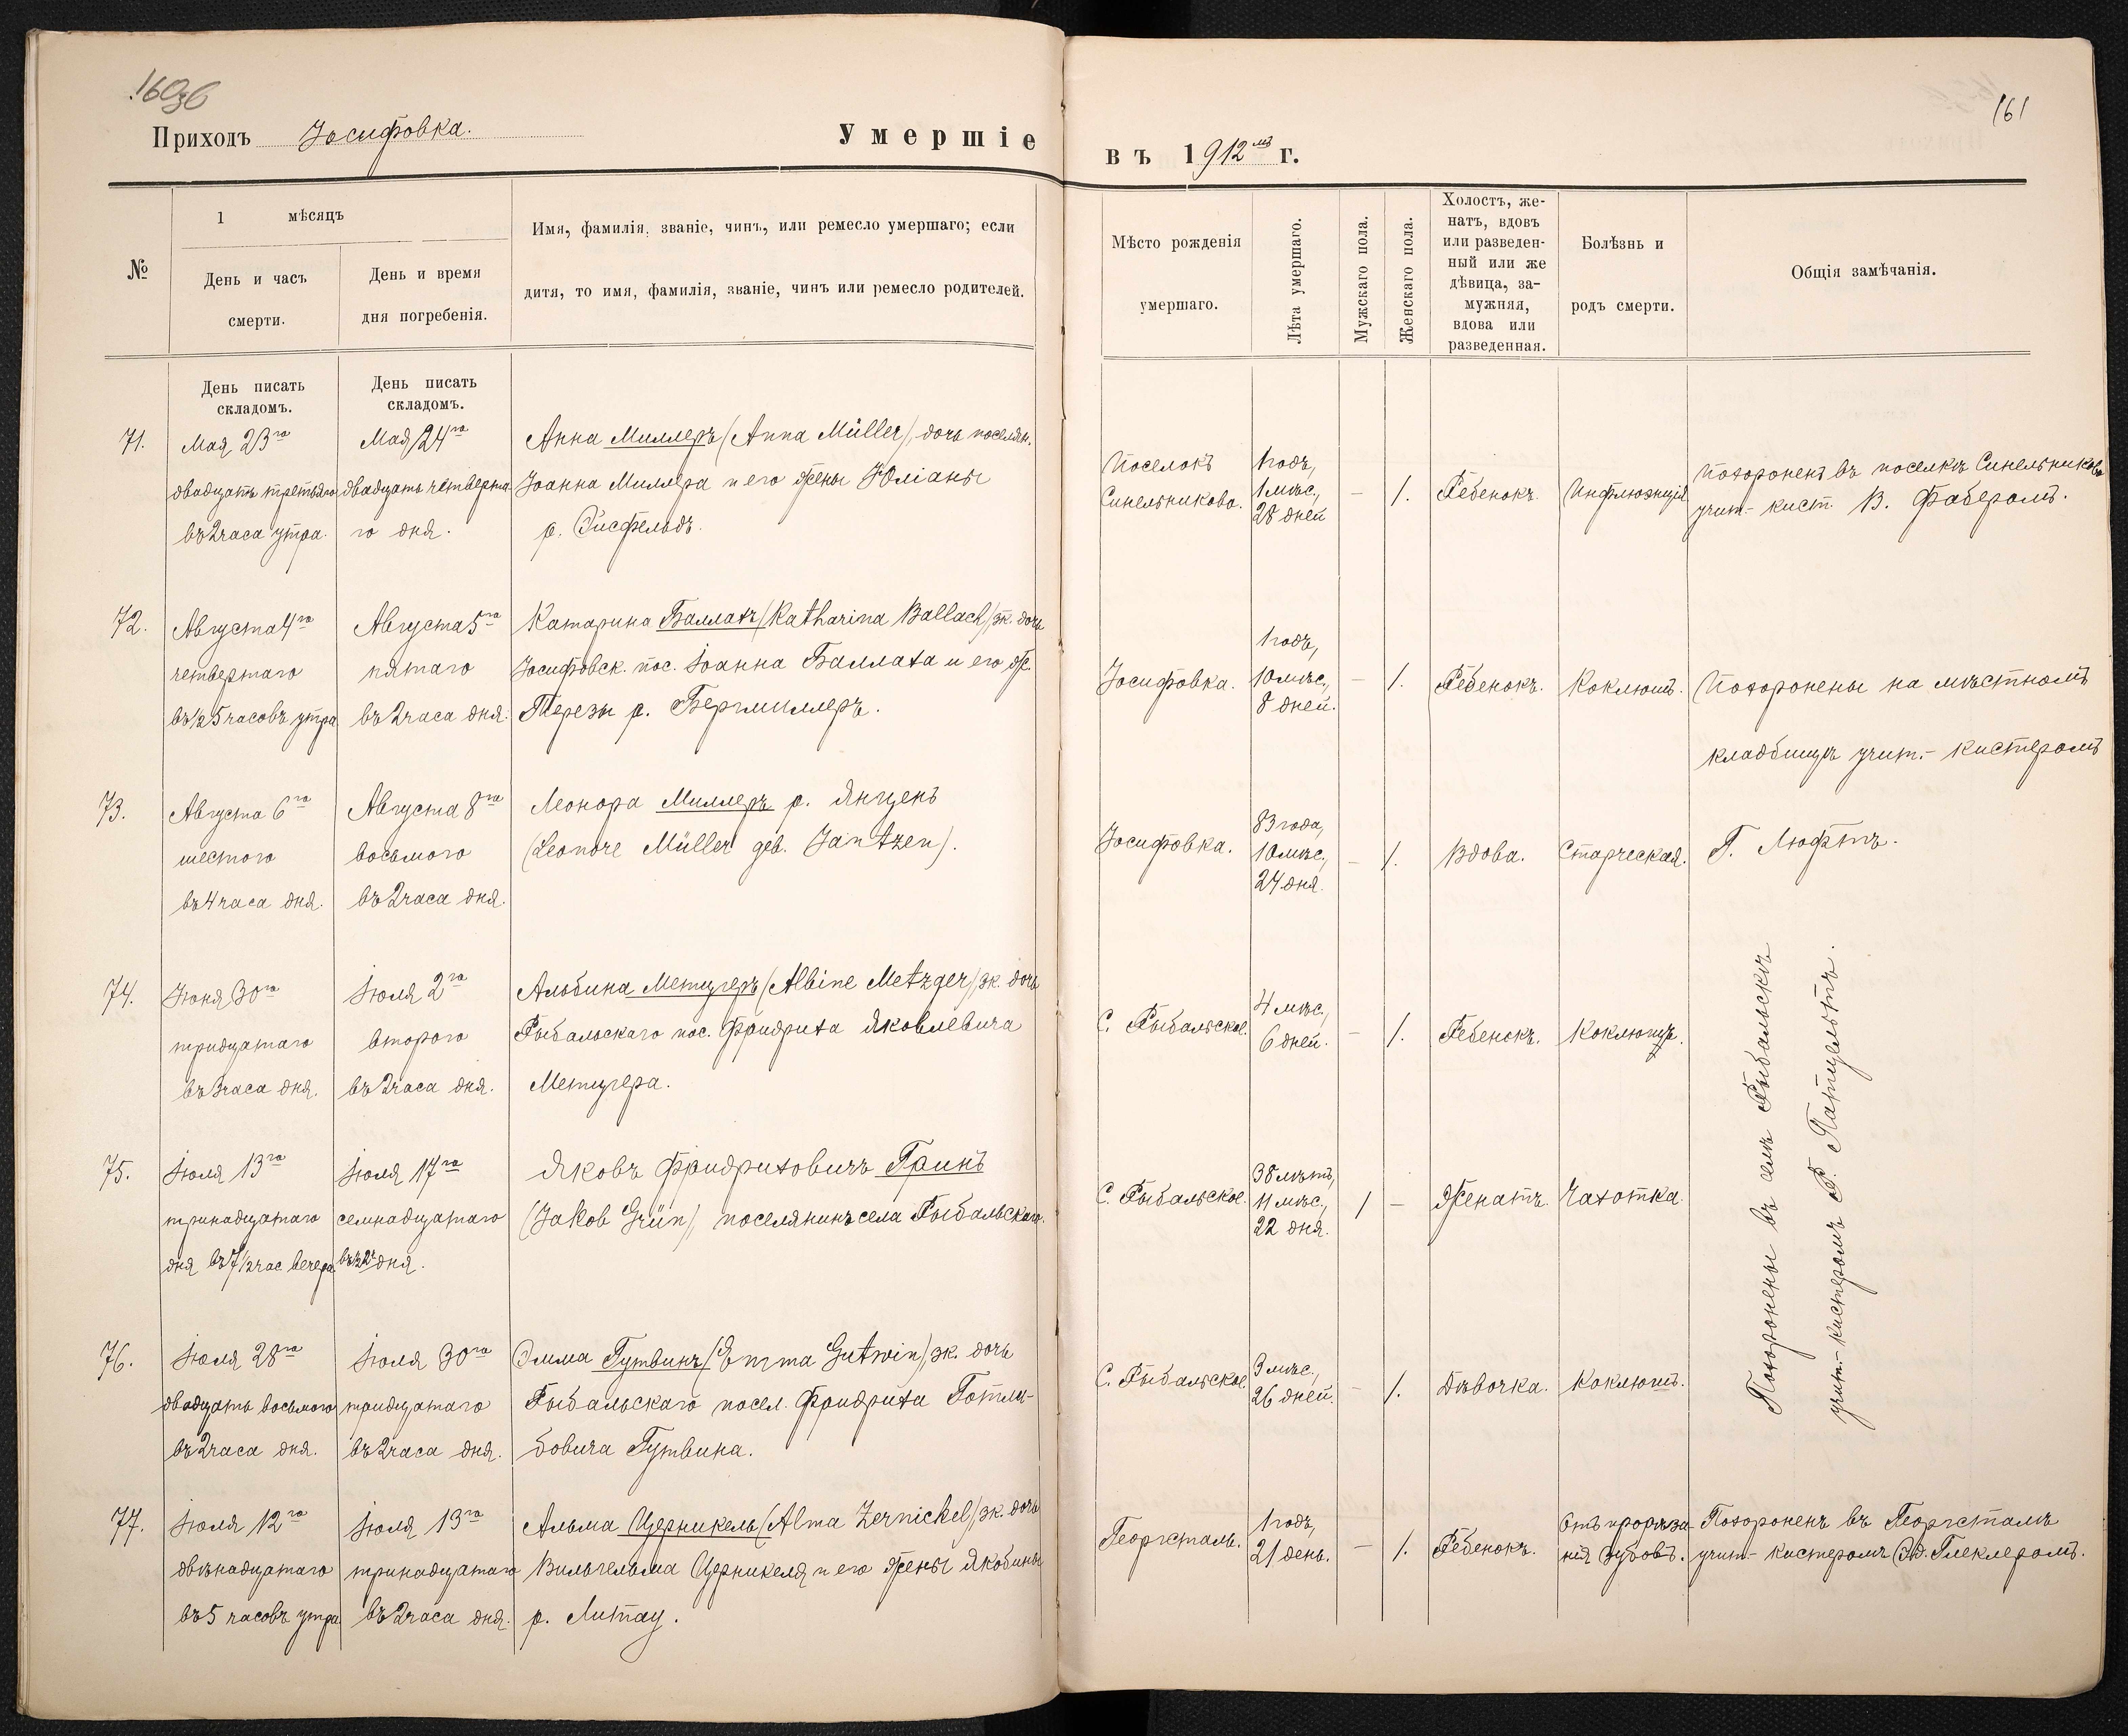 160об
Приходъ Іосифовка.
Умершіе
въ 1912мъ г.
161
№
1 мѣсяцъ
День и часъ
смерти.
День и время
дня погребенія.
Имя, фамилія, званіе, чинъ, или ремесло умершаго; если
дитя, то имя, фамилія, званіе, чинъ или ремесло родителей.
Мѣсто рожденія
умершаго.
Лѣта умершаго.
Мужскаго пола.
Женскаго пола.
Холостъ, же-
натъ, вдовъ
или разведен-
ный или же
дѣвица, за-
мужняя,
вдова или
разведенная.
Болѣзнь и
родъ смерти.
Общія замѣчанія.
День писать
складомъ.
День писать
складомъ.
71.
Мая 23го
двадцать третьяго
въ 2 часа утра.
Мая 24го
двадцать четверта-
го дня.
Анна Миллеръ (Anna Müller), дочь поселян.
Іоанна Миллера и его жены Юліаны
р. Эисфельдъ.
Поселокъ
Синельниково.
1 годъ,
1 мѣс.,
28 дней
—
1.
Ребенокъ.
Инфлюэнція
Похороненъ въ поселкѣ Синельниково
учит.- кист. В. Фаберомъ.
72.
Августа 4го
четвертаго
въ ½5 часовъ утра
Августа 5го
пятаго
въ 2 часа дня.
Катарина Баллахъ (Katharina Ballach), зк. дочь
Іосифовск. пос. Іоанна Баллаха и его ж.
Терезы р. Бергмиллеръ.
Іосифовка.
1 годъ,
10 мѣс.,
8 дней.
—
1.
Ребенокъ.
Коклюшъ.
Похоронены на мѣстномъ
кладбищѣ учит.- кистеромъ
73.
Августа 6го
шестого
въ 4 часа дня.
Августа 8го
восьмого
въ 2 часа дня.
Леонора Миллеръ р. Янценъ
(Leonore Müller geb. Jantzen).
Іосифовка.
83 года,
10 мѣс.,
24 дня.
—
1.
Вдова.
Старческая.
Г. Люфтъ.
74.
Іюня 30го
тридцатаго
въ 3 часа дня.
Іюля 2го
второго
въ 2 часа дня.
Альбина Мецгеръ (Albine Metzger), зк. дочь
Рыбальскаго пос. Фридриха Яковлевича
Мецгера.
С. Рыбальское.
4 мѣс.,
6 дней.
—
1.
Ребенокъ.
Коклюшъ.
Похоронены въ селѣ Рыбальскѣ
учит.- кистеромъ Ф. Патцельтъ.
75.
Іюля 13го
тринадцатаго
дня въ 7½ час. вечера.
Іюля 17го
семнадцатаго
въ 2 ч. дня.
Яковъ Фридриховичъ Гринъ
(Jakob Grün), поселянинъ села Рыбальскаго.
С. Рыбальское.
38 лѣтъ,
11 мѣс.,
22 дня.
1
—
Женатъ.
Чахотка.
76.
Іюля 28го
двадцать восьмого
въ 2 часа дня.
Іюля 30го
тридцатаго
въ 2 часа дня.
Эмма Гутвинъ (Emma Gutwin), зк. дочь
Рыбальскаго посел. Фридриха Готли-
бовича Гутвина.
С. Рыбальское.
3 мѣс.,
26 дней.
—
1.
Дѣвочка.
Коклюшъ.
77.
Іюля 12го
двѣнадцатаго
въ 5 часовъ утра
Іюля 13го
тринадцатаго
въ 2 часа дня.
Альма Церникель (Alma Zernickel), зк. дочь
Вильгельма Церникеля и его жены Якобины
р. Литау.
Георгсталь.
1 годъ,
21 день.
—
1.
Ребенокъ.
Отъ прорѣза-
нія зубовъ.
Похороненъ въ Георгсталѣ
учит.- кистеромъ Эд. Глеклеромъ.